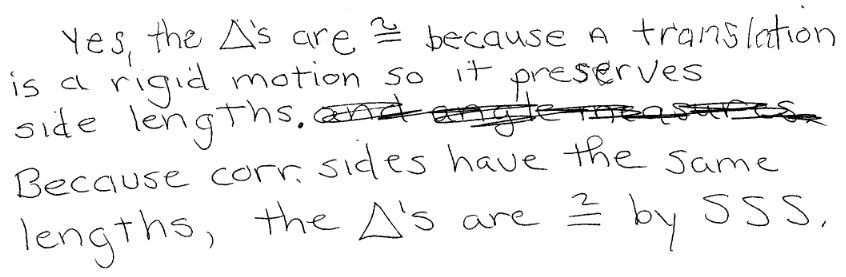 Yes, the Δ's are ≅ because a translation
is a rigid motion so it preserves
side lengths. and angle measures.
Because corr. sides have the same
lengths, the Δ's are ≅ by SSS.